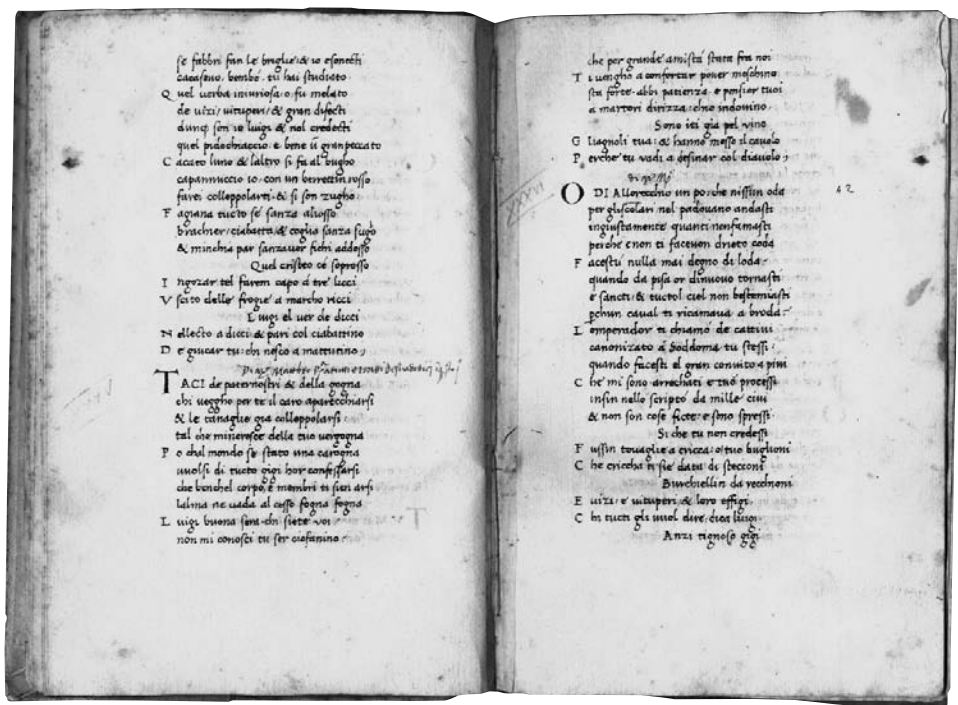 se fabbri fan le briglie & io esonecti
cacaseno, bombe, tu hai studiato
Quel verba iniuriosa o fu melato
de vizi, vituperi, & gran difecti
dunq; son io luigi & nol credecti
quel pidochiaccio, e bene il gran peccato
Cacato luno & laltro si fa al bugho
capannuccio io, con un berrettin rosso
farei colleppolarti & si son zugho
Fagiana tucto se sanza aliosso
brachier, ciabatta, & coglia sanza sugo
& minchia par sanzaver fichi addosso
Quel cristeo ce sopresso
Ingozar tel farem capo a tre licci
Uscito delle frogie a marcho ricci
Luigi el ver de dicci
Nellecto a dicci & pari col ciabattino
De giucar tu: chi nesco a mattutino;
TACI de paternostri & della gogna
chi vegho per te il caro aparecchiarsi
& le tanaglie gia colleppolarsi
tal che mineresce della tuo vergogna
Po chal mondo se stato una carogna
vuolsi di tucto gigi hor confessarsi
che benchel corpo, e membri ti sien arsi
lalma ne vada al cesso fogna fogna
Luigi buona sera: chi siete voi
non mi conosci tu ser ciofanino
che per grande amista stata fra noi
Ti vengho a confortar pover meschino
sta forte abbi patienza e pensier tuoi
a martori dirizza: chio indovino
Sono iti gia pel vino
Gliagnoli tua: & hanno messo il cavolo
Perche tu vadi a desinar col diavolo;
XXXVI
42
ODI Allorecchio un po: che nissun oda
per gliscolari nel padovano andasti
ingiustamente quanti nenfamasti
perche e non ti facevon drieto coda
Facesti nulla mai degno di loda
quando da pisa or dinuovo tornasti
e sancti & tuctol ciel non bestemiasti
pchun caval ti ricamava a broda
Lemperador ti chiamo de cattivi
canonizato a Soddoma tu stessi
quando facesti el gran convito a pivi
Che mi sono arrechati e tuo processi
insin nello scripto da mille civi
& non son cose ficte: e sono spressi
Si che tu non credessi
Fussin tovaglie a cricca: o tuo buglioni
Che criccha ti sie data di stecconi
Burchiellin da recchioni
E vizi, e vituperi & loro effigi
Chi tucti gli vuol dire, dica luigi
Anzi tignoso gigi